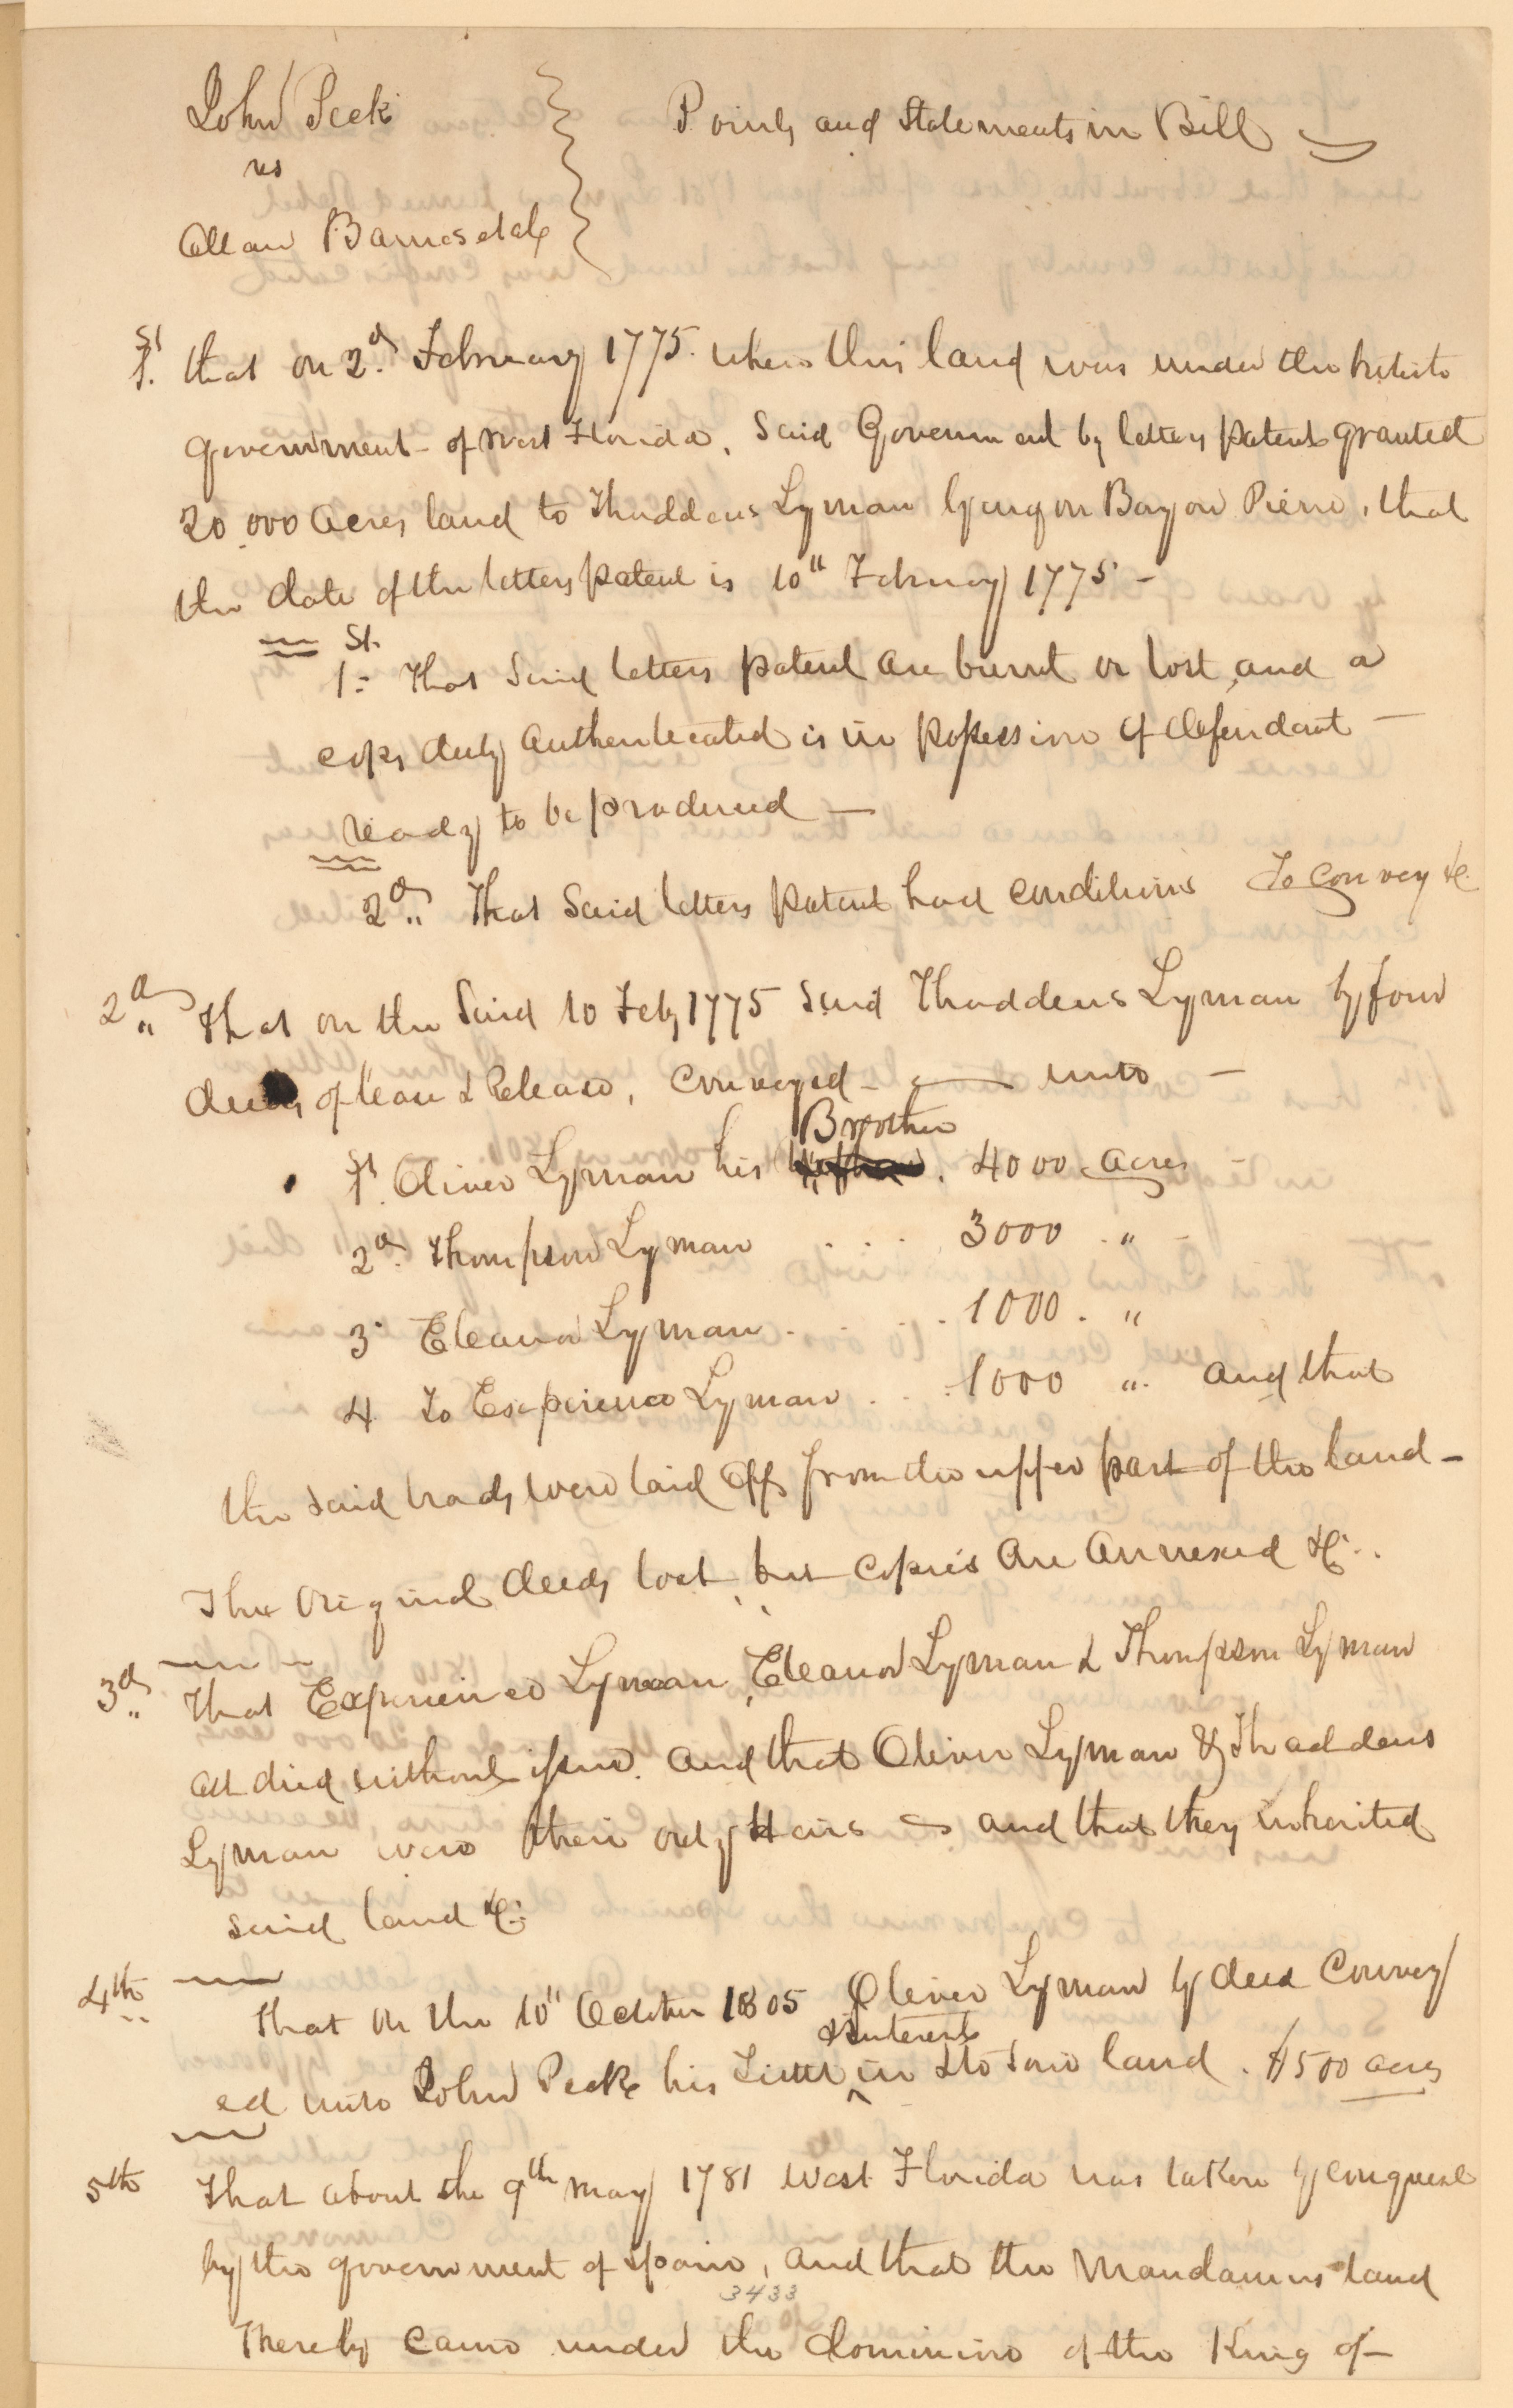 John Peck
vs
Allan Barnesdale
Points and Statements in Bill
1st. that on 2d. February 1775. when this land was under the British
Government of West Florida, Said Government by letters patent granted
20.000 Acres land to Thaddeus Lyman lying on Bayou Pierre, that
the date of the letters patent is 10th February 1775 -
1st. That Said letters patent are burnt or lost, and a
copy duly Authenticated is in possession of defendant -
ready to be produced —
2d. That Said letters patent had conditions To Convey &c.
2d. That on the Said 10 Feby 1775 Said Thaddeus Lyman by four
deeds of lease & Release, Conveyed - — unto -
Brother
1st. Oliver Lyman his . 4000 acres -
2d. Thompson Lyman . . . 3000 . "
3. Eleanor Lyman . . . . 1000 . "
4 To Experience Lyman . . . 1000 ". and that
the said tracts were laid off from the upper part of the land -
The Original deeds lost, but copies Are Annexed &c..
3d. That Experience Lyman, Eleanor Lyman & Thompson Lyman
all died without issue. and that Oliver Lyman & Thaddeus
Lyman were their only Heirs - and that they inherited
said land &c.
4th That on the 10th October 1805 Oliver Lyman by deed Convey
& Interest
ed unto John Peck his Title in to said land . 4500 acres
5th That about the 9th May 1781 West Florida was taken by conquest
by the government of Spain, and that the Mandamus land
3433
Thereby came under the dominion of the King of -